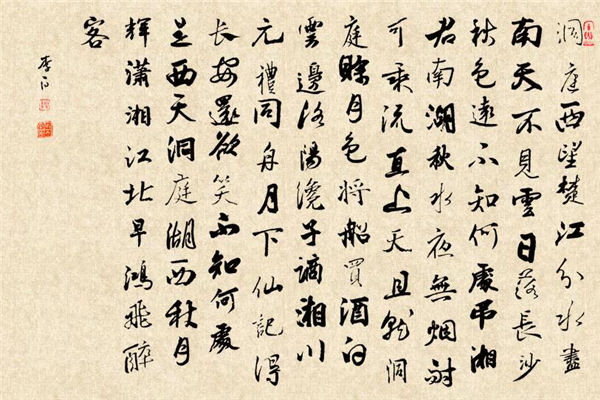 洞庭西望楚江分水盡
南天不見雲日落長沙
秋色遠不知何處吊湘
君南湖秋水夜無烟耐
可乘流直上天且就洞
庭賖月色将船買酒白
雲邊洛陽纔子謫湘川
元禮同舟月下仙記得
長安還欲笑不知何處
是西天洞庭湖西秋月
輝瀟湘江北早鴻飛醉
客
李白